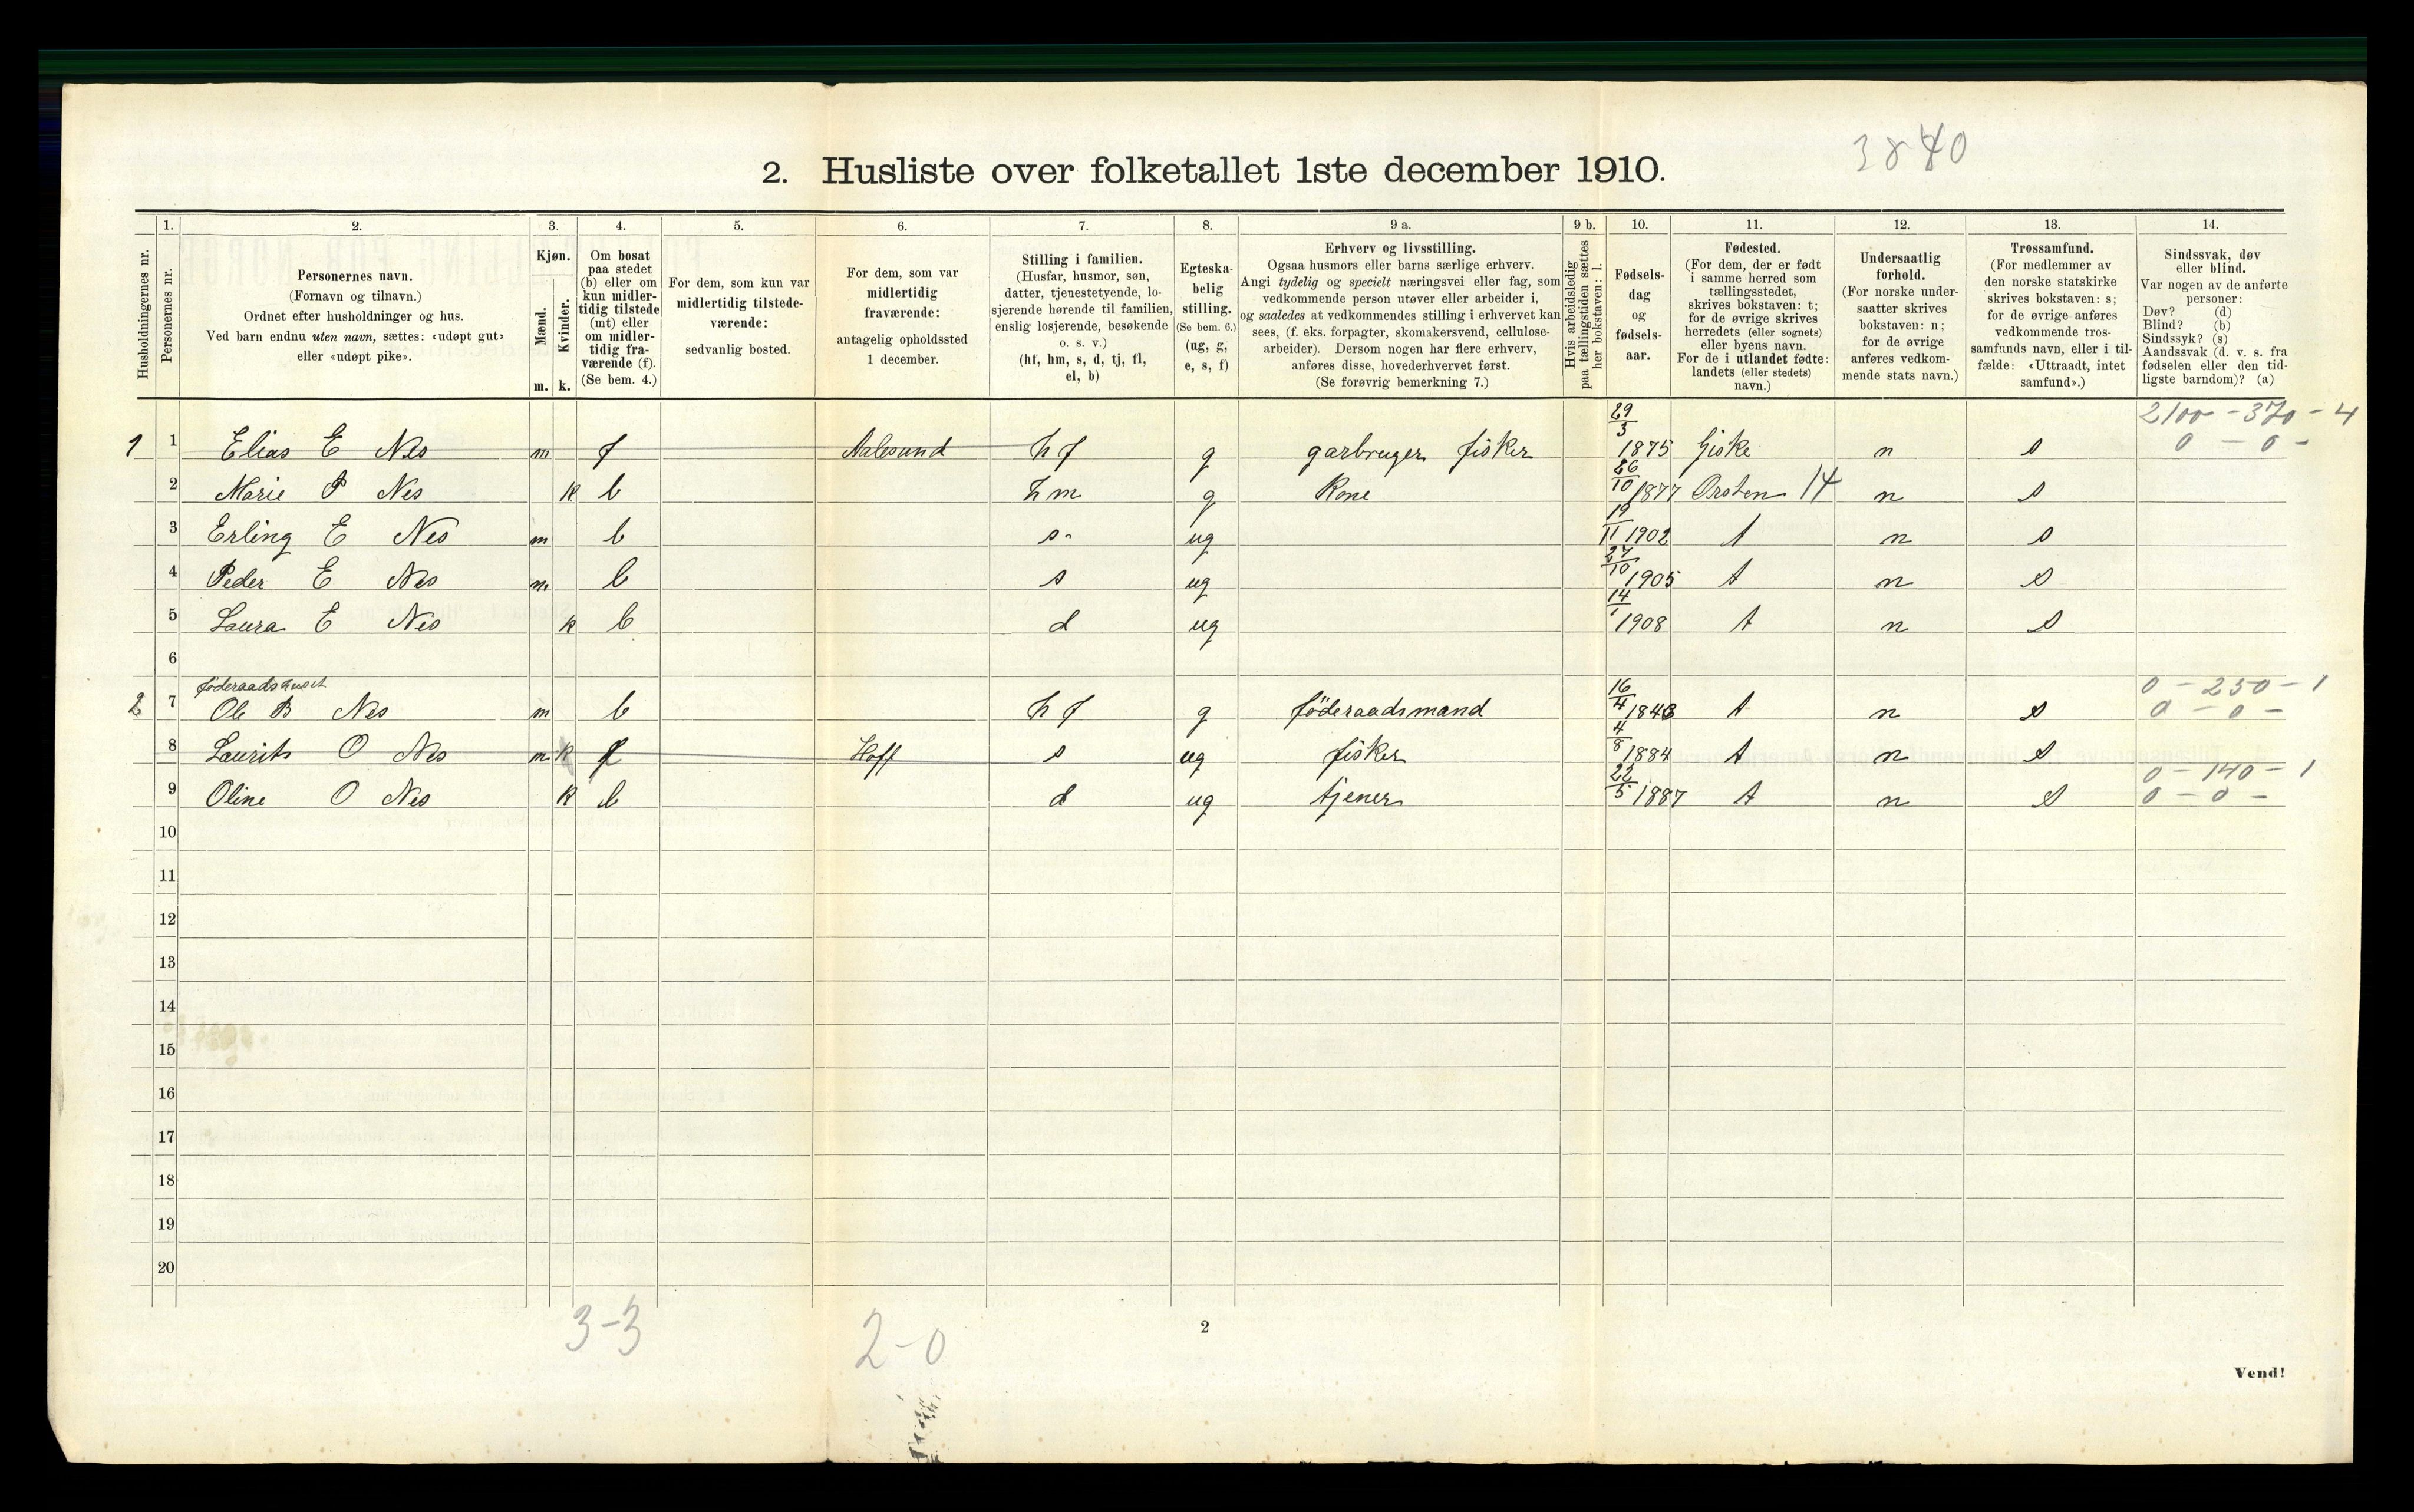 3840
2. Husliste over folketallet 1ste december 1910.
Husholdningernes nr.
1.
Personernes nr.
2.
Personernes navn.
(Fornavn og tilnavn.)
Ordnet efter husholdninger og hus.
Ved barn endnu uten navn, sættes: «udøpt gut»
eller «udøpt pike».
3.
Kjøn.
Mænd.
m.
Kvinder.
k.
4.
Om bosat
paa stedet
(b) eller om
kun midler-
tidig tilstede
(mt) eller
om midler-
tidig fra-
værende (f).
(Se bem. 4.)
5.
For dem, som kun var
midlertidig tilstede-
værende:
sedvanlig bosted.
6.
For dem, som var
midlertidig
fraværende:
antagelig opholdssted
1 december.
7.
Stilling i familien.
(Husfar, husmor, søn,
datter, tjenestetyende, lo-
sjerende hørende til familien,
enslig losjerende, besøkende
o. s. v.)
(hf, hm, s, d, tj, fl,
el, b)
8.
Egteska-
belig
stilling.
(Se bem. 6.)
(ug, g,
e, s, f)
9 a.
Erhverv og livsstilling.
Ogsaa husmors eller barns særlige erhverv.
Angi tydelig og specielt næringsvei eller fag, som
vedkommende person utøver eller arbeider i,
og saaledes at vedkommendes stilling i erhvervet kan
sees, (f. eks. forpagter, skomakersvend, cellulose-
arbeider). Dersom nogen har flere erhverv,
anføres disse, hovederhvervet først.
(Se forøvrig bemerkning 7.)
9 b.
Hvis arbeidsledig
paa tællingstiden sættes
her bokstaven: l.
10.
Fødsels-
dag
og
fødsels-
aar.
11.
Fødested.
(For dem, der er født
i samme herred som
tællingsstedet,
skrives bokstaven: t;
for de øvrige skrives
herredets (eller sognets)
eller byens navn.
For de i utlandet fødte:
landets (eller stedets)
navn.)
12.
Undersaatlig
forhold.
(For norske under-
saatter skrives
bokstaven: n;
for de øvrige
anføres vedkom-
mende stats navn.)
13.
Trossamfund.
(For medlemmer av
den norske statskirke
skrives bokstaven: s;
for de øvrige anføres
vedkommende tros-
samfunds navn, eller i til-
fælde: «Uttraadt, intet
samfund».)
14.
Sindssvak, døv
eller blind.
Var nogen av de anførte
personer:
Døv? (d)
Blind? (b)
Sindssyk? (s)
Aandssvak (d. v. s. fra
fødselen eller den tid-
ligste barndom)? (a)
2100 - 370 - 4
1 1 Elias E Nes m f Aalesund hf g garbruger fisker 29/3 1875 Giske n s 0 - 0 -
2 Marie P Nes k b hm g Kone 26/10 1877 Orsten 14 n s
3 Erling E Nes m b s ug 19/11 1902 t n s
4 Peder E Nes m b s ug 27/10 1905 t n s
5 Laura E Nes k b d ug 14/1 1908 t n s
6
føderaadshuset 0 - 250 - 1
2 7 Ole B Nes m b hf g föderaadsmand 16/4 1843 t n s 0 - 0 -
8 Laurits O Nes m k f Hoff s ug fisker 4/8 1884 t n s
0 - 140 - 1
9 Oline O Nes k b d ug tjener 22/5 1887 t n s 0 - 0 -
10
11
12
13
14
15
16
17
18
19
20
3-3
2-0
2
Vend!